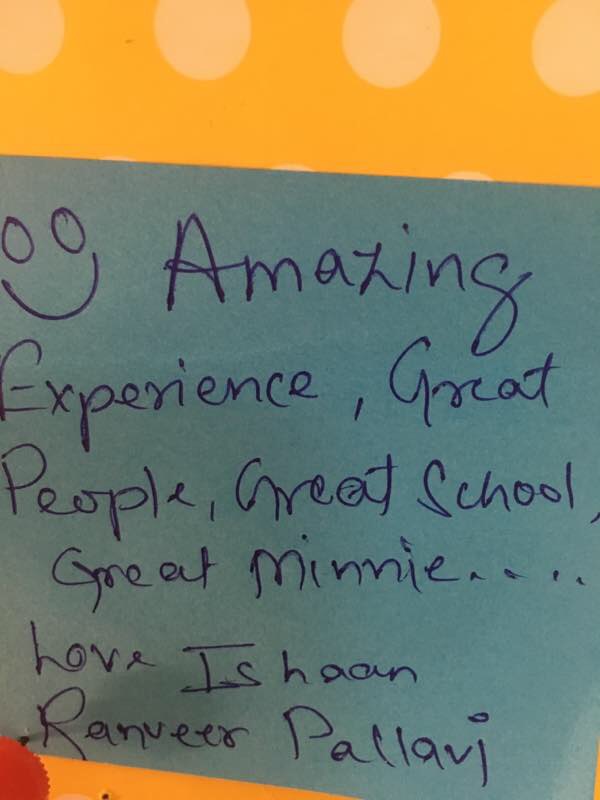 Amazing
Experience, Great
People, Great School,
Great Minnie.....
Love Ishaan
Ranveer Pallavi